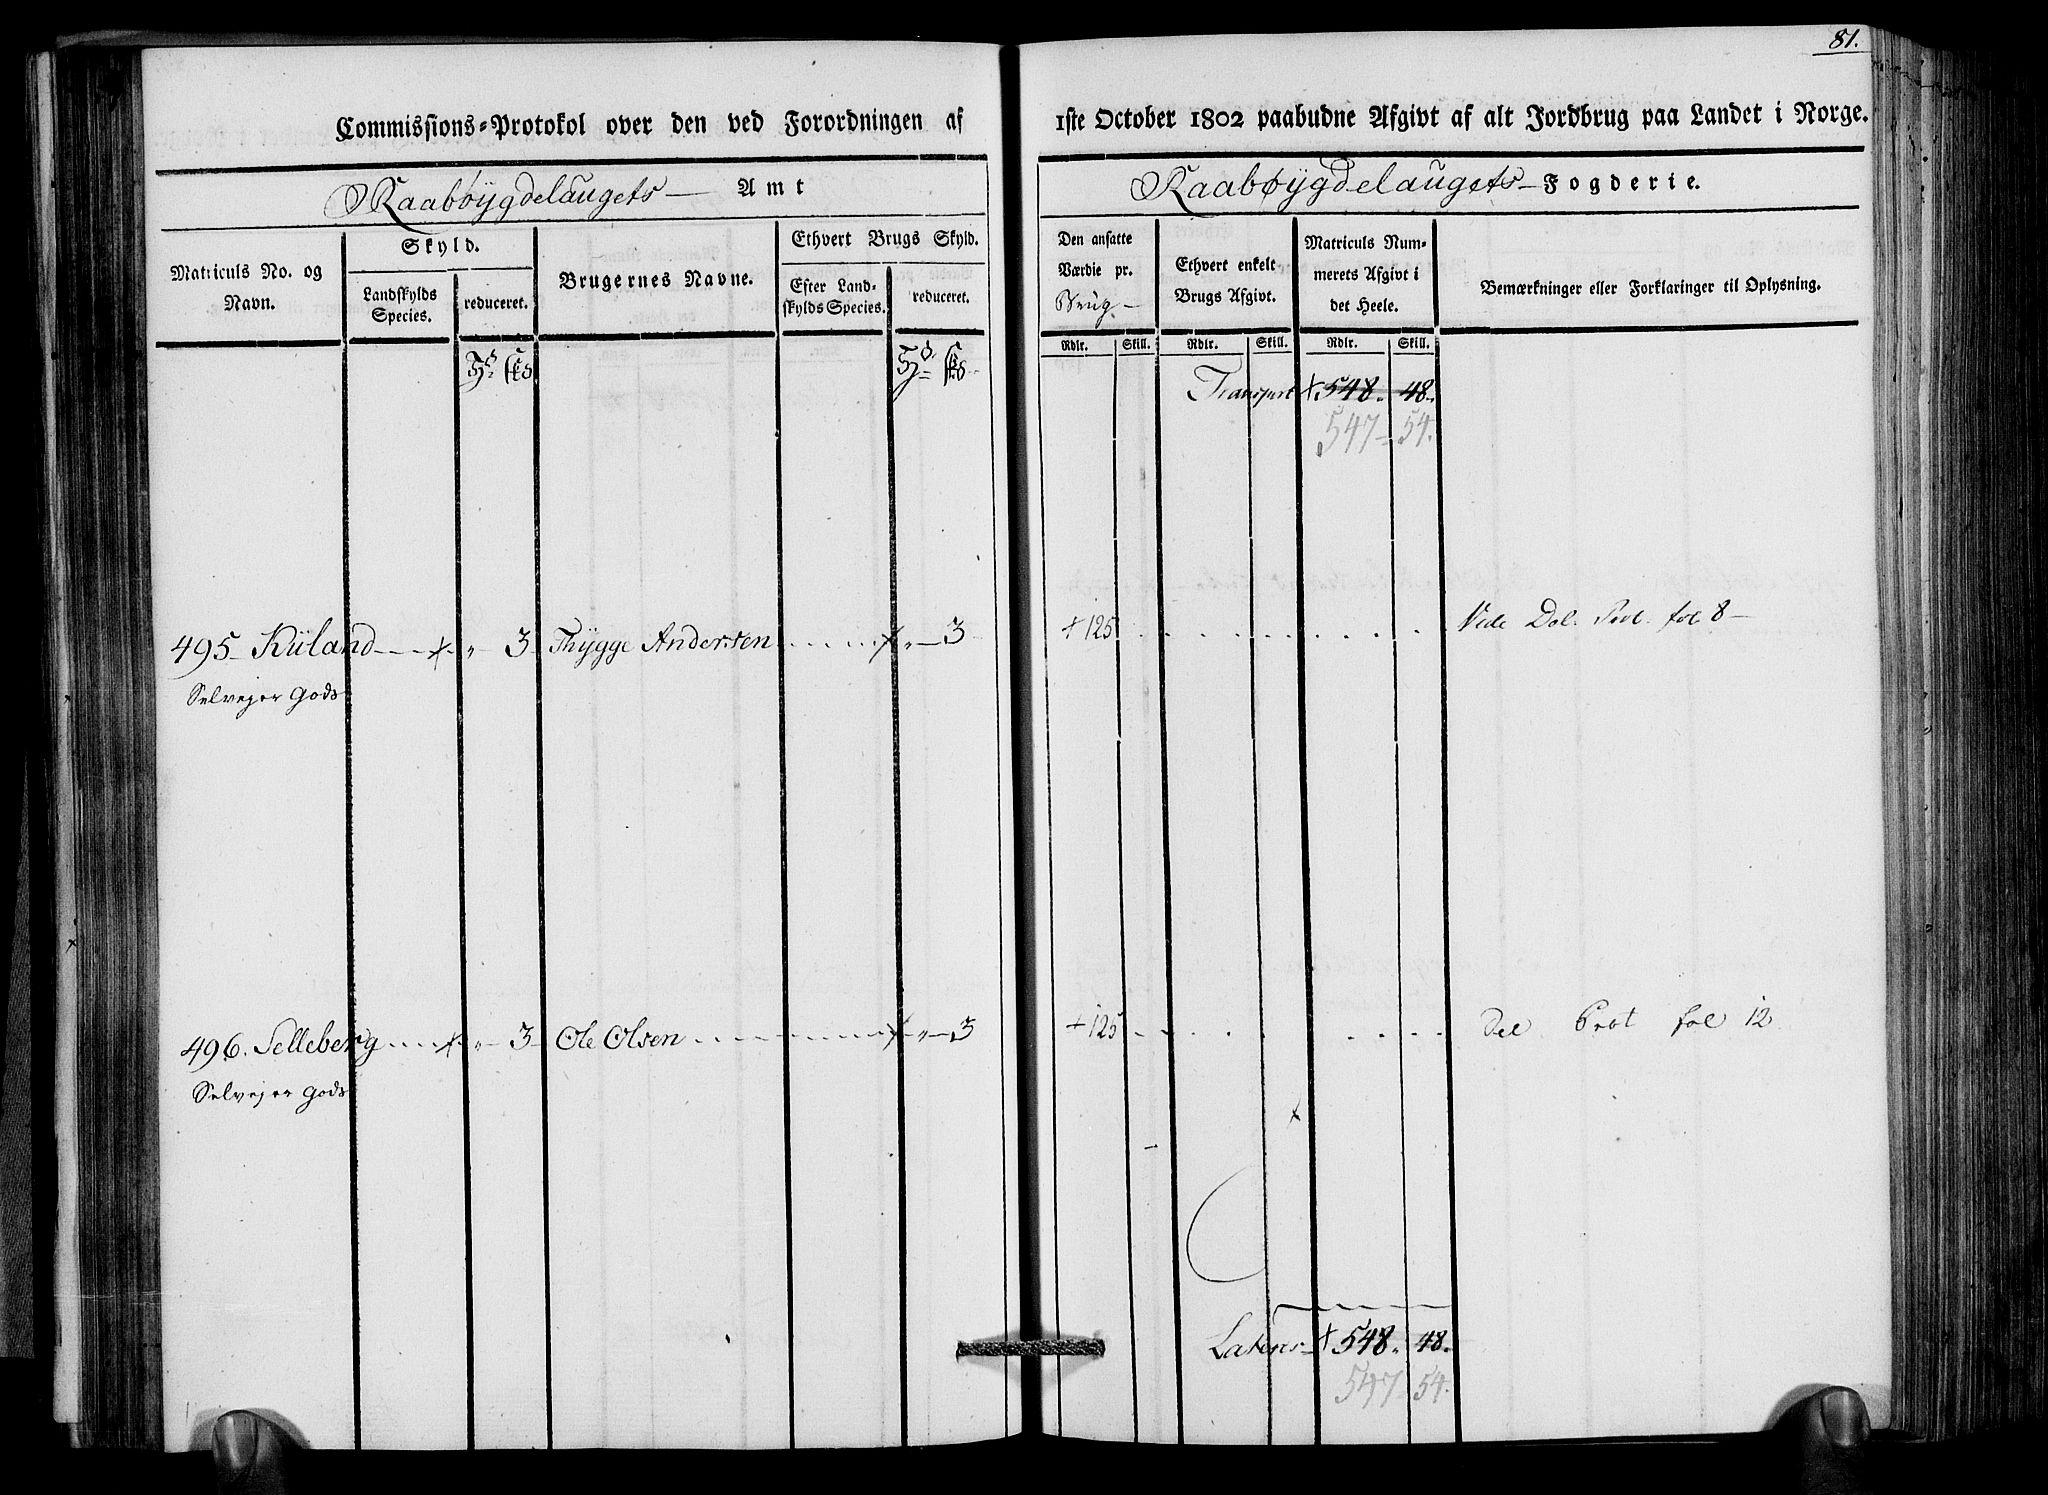 81.
Commissions-Protokol over den ved Forordningen af 1ste October 1802 paabudne Afgivt af alt Jordbrug paa Landet i Norge.
Raabøygdelaugets Amt
Raabøygdelaugets Fogderie.
Matriculs No. og Navn.
Skyld.
Landskylds Species.
reduceret.
Brugernes Navne.
Ethvert Brugs Skyld.
Efter Landskylds Species.
reduceret.
Den ansatte Værdie pr. Brug.
Ethvert enkelt Brugs Afgivt.
Matriculs Nummerets Afgivt i det Heele.
Bemærkninger eller Forklaringer til Oplysning.
Rdlr. Skill. Rdlr. Skill. Rdlr. Skill.
Transport + 548. 48.
547 - 54.
495 Küland - - + - " - 3 Thÿgge Andersen - - + " - 3 + 125 Vide Del. Prot. fol 8
Selvejer Gods
496. Selleberg - - + - " - 3 Ole Olsen - - + " - 3 + 125 Del Prot fol 12
Selvejer Gods
Latens + 548. 48.
547 54.